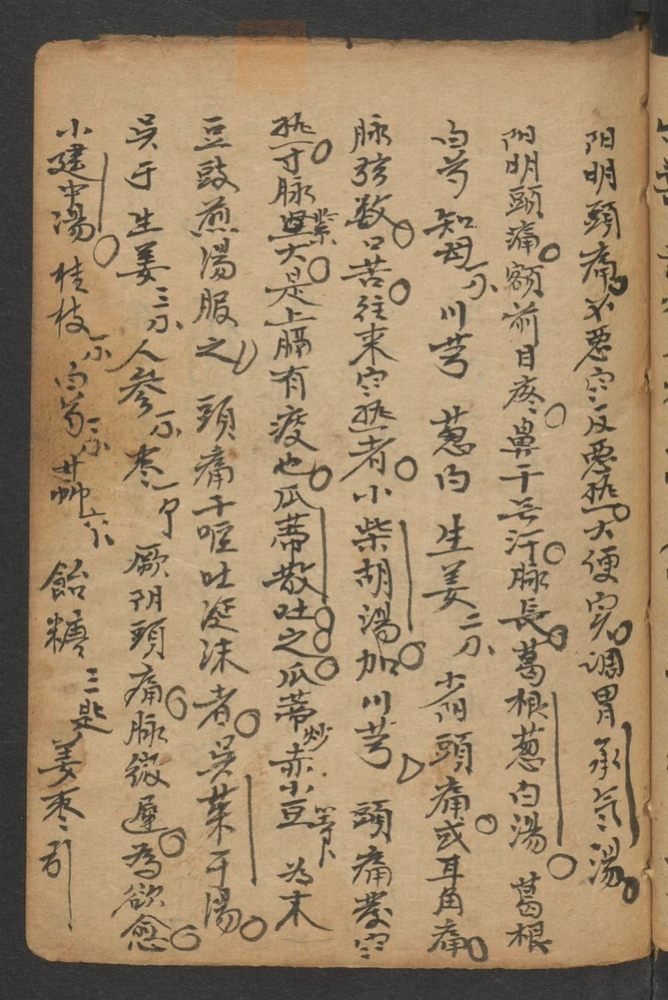 阳明頭痛不悪寒反悪热大便実调胃承气湯
阳明頭痛额前目疼鼻干无汗脉長葛根葱白湯 葛根
白芍 知母 川芎 葱白 生姜二 少阳頭痛或耳角痛
脉弦数口苦往来寒热者小柴胡湯加川芎 頭痛发寒
热寸脉紧大是上膈有痰也瓜蒂散吐之瓜蒂炒赤小豆等分为末
豆豉煎湯服之 頭痛干呕吐涎沫者吴茱于湯
吴于 生姜三 人参 枣一 厥阴頭痛脉微遲為欲愈
小建中湯 桂枝 白芍 甘艸 飴糖三匙 姜枣引